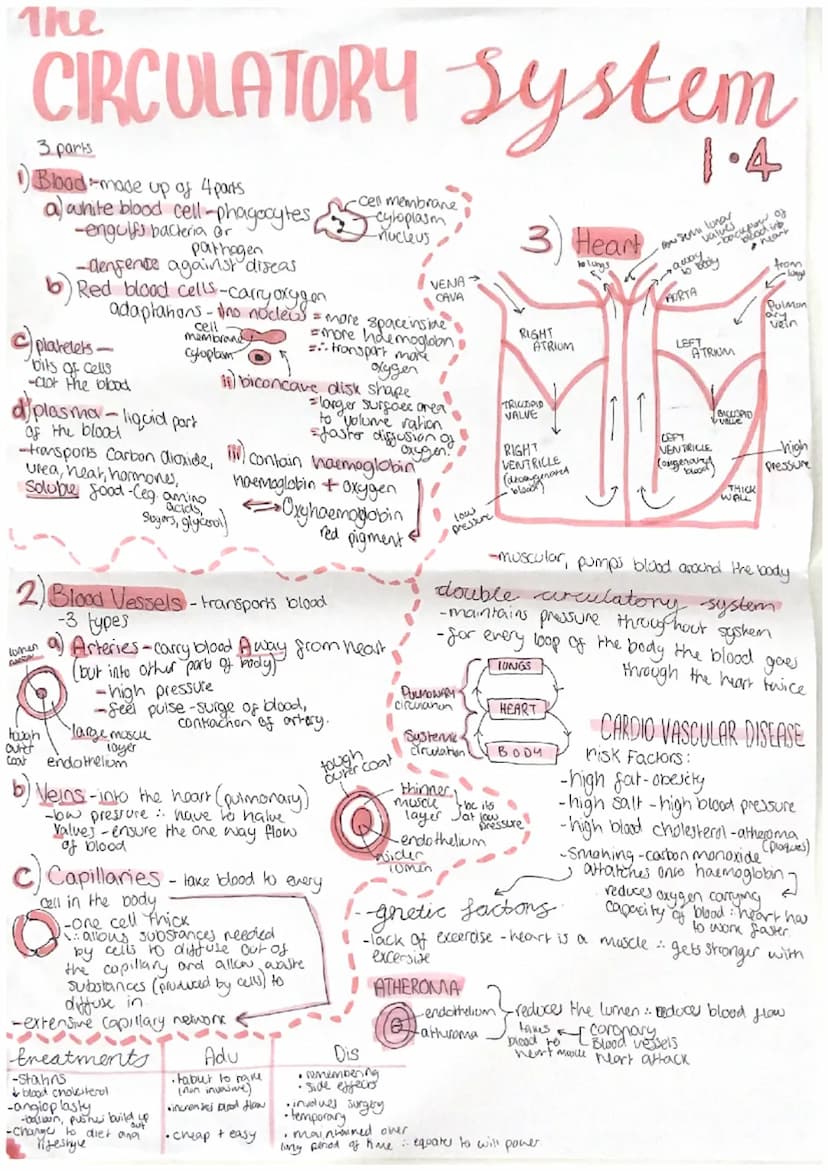 The
CIRCULATORY System
1.4
3 parts
1) Blood - made up of 4 parts
a) white blood cell - phagocytes
- engulfs bacteria or
pathogen
- denfence against diseas
cell membrane
cytoplasm
nucleus
b) Red blood cells - carry oxygen
adaptations - i) no nucleus = more space inside
= more haemoglobin
= ∴ transport more
oxygen
cell
membrane
cytoplasm
ii) biconcave disk shape
= larger surface area
to volume ration
= faster diffusion of
oxygen!
iii) contain haemoglobin
haemoglobin + oxygen
⇌ Oxyhaemoglobin
red pigment
c) platelets -
bits of cells
- clot the blood
d) plasma - liquid part
of the blood
- transports carbon dioxide,
urea, heat, hormones,
soluble food - (eg. amino
acids,
sugars, glycerol)
3) Heart
to lungs
semi lunar
valves
- backflow of
blood into
heart
away
to body
from
lungs
VENA
CAVA
AORTA
Pulmon
ary
vein
RIGHT
ATRIUM
LEFT
ATRIUM
TRICUSPID
VALVE
BICUSPID
VALVE
RIGHT
VENTRICLE
(deoxygenated
blood)
LEFT
VENTRICLE
(oxygenated
blood)
high
pressure
THICK
WALL
low
pressure
- muscular, pumps blood around the body
2) Blood Vessels - transports blood
- 3 types
a) Arteries - carry blood Away from heart
(but into other parts of body)
- high pressure
- feel pulse - surge of blood,
contraction of artery.
lumen
tough
outer
coat
large muscle
layer
endothelium
b) Veins - into the heart (pulmonary)
- low pressure ∴ have to have
values - ensure the one way flow
of blood
tough
outer coat
thinner
muscle
layer
bc its
at low
pressure
endothelium
wider
lumen
c) Capillaries - take blood to every
cell in the body
- one cell thick
∴ allows substances needed
by cells to diffuse out of
the capillary and allow waste
substances (produced by cells) to
diffuse in
- extensive capillary network
double circulatory system
- maintains pressure throughout system
- for every loop of the body the blood goes
through the heart twice
LUNGS
Pulmonary
circulation
HEART
Systemic
circulation
BODY
CARDIO VASCULAR DISEASE
risk factors:
- high fat - obesity
- high salt - high blood pressure
- high blood cholesterol - atheroma
(plaques)
- Smoking - carbon monoxide
attatches onto haemoglobin
reduces oxygen carrying
capacity of blood ∴ heart has
to work faster
- genetic factors
- lack of excercise - heart is a muscle ∴ gets stronger with
excersise
ATHEROMA
endothelium
atheroma
- reduces the lumen ∴ reduces blood flow
takes
blood to
heart muscle
coronary
Blood vessels
heart attack
treatments Adv Dis
- statins
↓ blood cholesterol
• tablet to take
(non invasive)
• remembering
• side effects
- angioplasty
- balloon, pushes build up
out
• increases blood flow
• involves surgery
• temporary
- changes to diet and
lifestyle
• cheap + easy
• maintained over
long period of time ∴ equates to will power